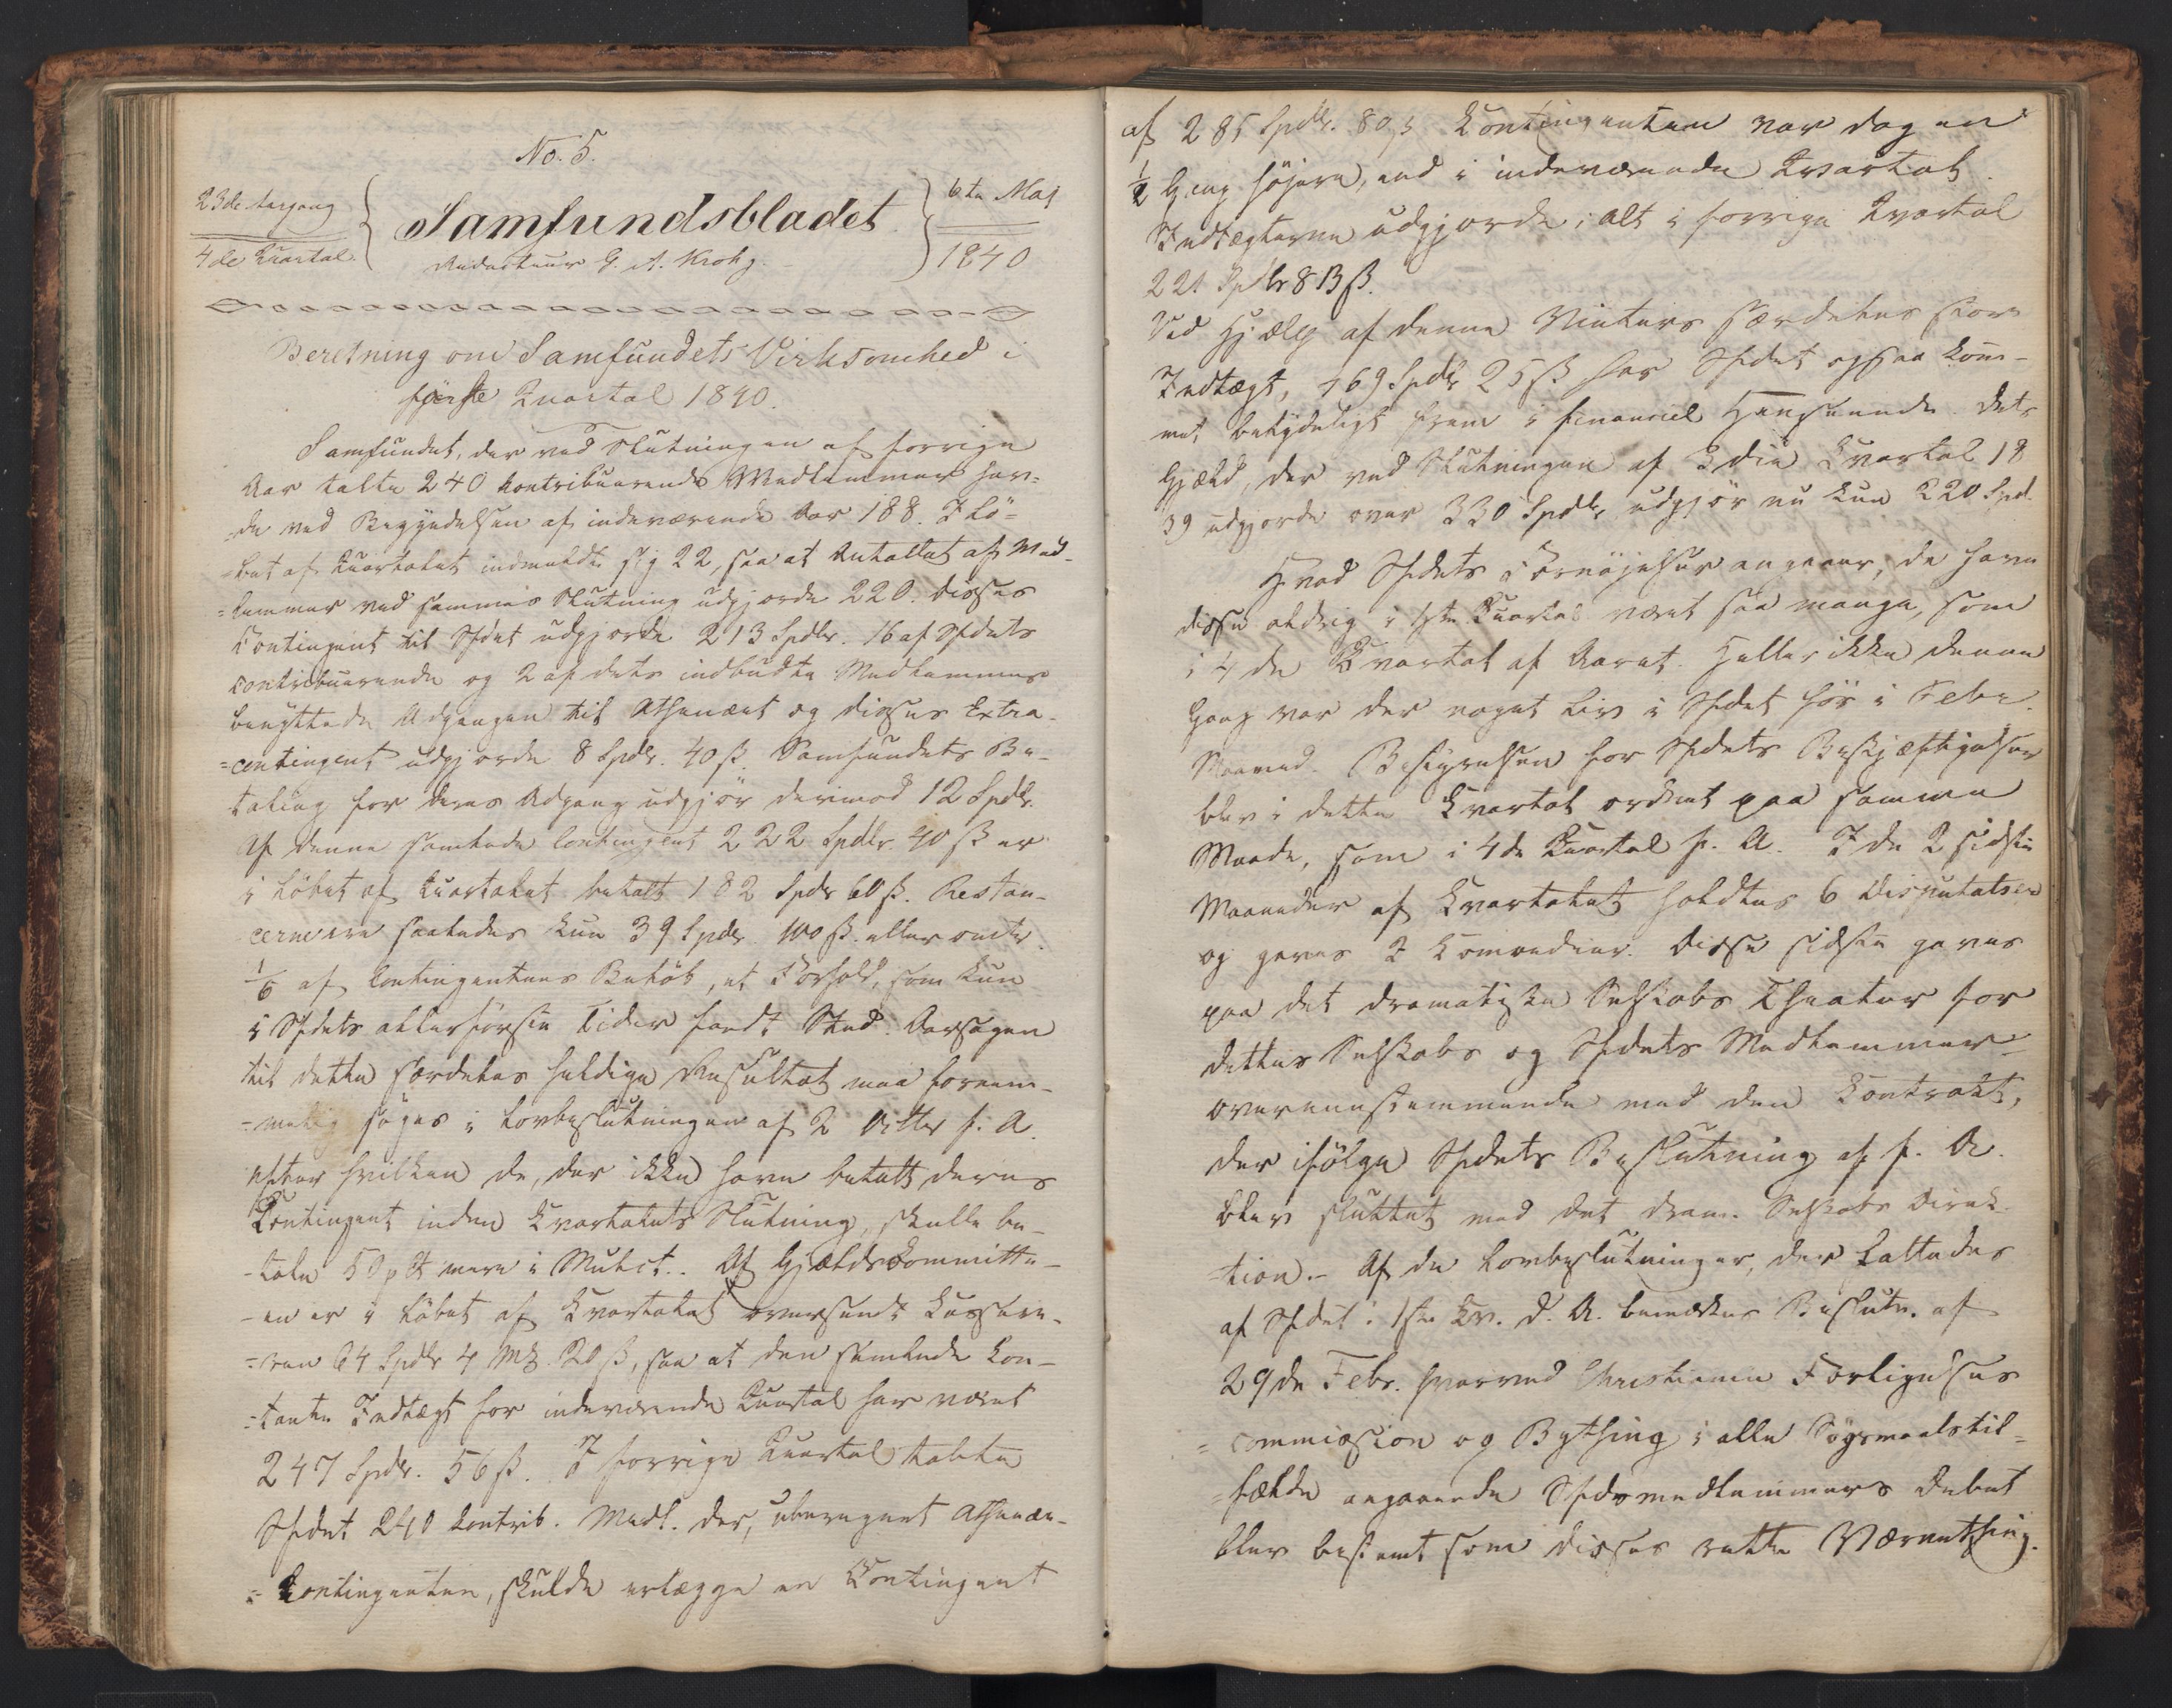 No. 5.
23de Aargang
4de Quartal.
Samfundsbladet
Redacteur G. A. Krohg.
6te Maj
1840
Beretning om Samfundets Virksomhed i
første Quartal 1840.
Samfundet, der ved Slutningen af forrige
Aar talte 240 kontribuerende Medlemmer hav-
-de ved Begyndelsen af indeværende Aar 188. I Lø-
-bet af Quartalet indmeldte sig 22, saa at Antallet af Med-
-lemmer ved sammes Slutning udgjorde 220. Disses
Contingent til Sfdet udgjorde 213 Spdlr. 16 af Sfdets
contribuerende og 2 af dets indbudte Medlemmer
benyttede Adgangen til Athenæet og disses Extra-
-contingent udgjorde 8 Spdlr. 40 ß. Samfundets Be-
taling for deres Adgang udgjør derimod 12 Spdlr.
Af denne samlede Contingent 222 Spdlr. 40 ß er
i Løbet af Quartalet betalt 182 Spdlr 60 ß. Restan-
cerne ere saaledes kun 39 Spdlr. 100 ß. eller omtr.
1/6 af Contingentens Beløb, et Forhold, som kun
i Sfdets allerførste Tider fandt Sted. Aarsagen
til dette særdeles heldige Resultat maa fornem-
-melig søges i Lovbeslutningen af 2 f. A.
efter hvilken de, der ikke have betalt deres
Contingent inden Kvartalets Slutning, skulle be-
-tale 50 pCt mere i Mulct. Af Gjældskommitte-
-en er i Løbet af Kvartalet oversendt Kassere-
-ren 64 Spdlr 4 Mk. 20 ß, saa at den samlede kon-
-tante Indtægt for indeværende Quartal har været
247 Spdlr. 56 ß. I forrige Quartal talte
Sfdet 240 kontrib. Medl. der, uberegnet Athenæ-
-kontingenten, skulde erlægge en Contingent
af 285 Spdlr. 80 ß Kontingenten var dog en
1/2 Gang høiere, end i indeværende Kvartal.
Indtægterne udgjorde i alt i forrige Kvartal
221 Spdlr 8 13 ß.
Ved Hjælp af denne Vinters særdeles store
Indtægt, 169 Spdlr 25 ß har Sfdet ogsaa kom-
met betydeligt frem i financiel Henseende. Dets
Gjæld, der ved Slutningen af 3die Kvartal 18
39 udgjorde over 330 Spdlr udgjør nu kun 220 Spd.
Hvad Sfdets Fornøjelser angaaer, da have
disse aldrig i 1ste Quartal været saa mange, som
i 4de Kvartal af Aaret. Heller ikke denne
Gang var der noget Liv i Sfdet før i Febr.
Maaned. Bestyrelsen for Sfdets Beskjæftigelser
blev i dette Kvartal ordnet paa samme
Maade, som i 4de Quartal f. A. I de 2 sidste
Maaneder af Kvartalet holdtes 6 Disputatser
og gaves 2 Komoedier. Disse sidste gaves
paa det dramatiske Selskabs Theater for
dettes Selskabs og Sfdets Medlemmer
overensstemmende med den Kontrakt,
der ifølge Sfdets Beslutning af f. A.
blev sluttet med det dram. Selskabs Direk-
-tion.- Af de Lovbeslutninger, der fattedes
af Sfdet i 1ste Kv. d. A. bemærkes Beslutn. af
29de Febr. hvorved Christiania Forligelses
-commission og Bything i alle Søgsmaalstil-
-fælde angaaende Sfdsmedlemmers Debet
blev bestemt som disses rette Værnething.